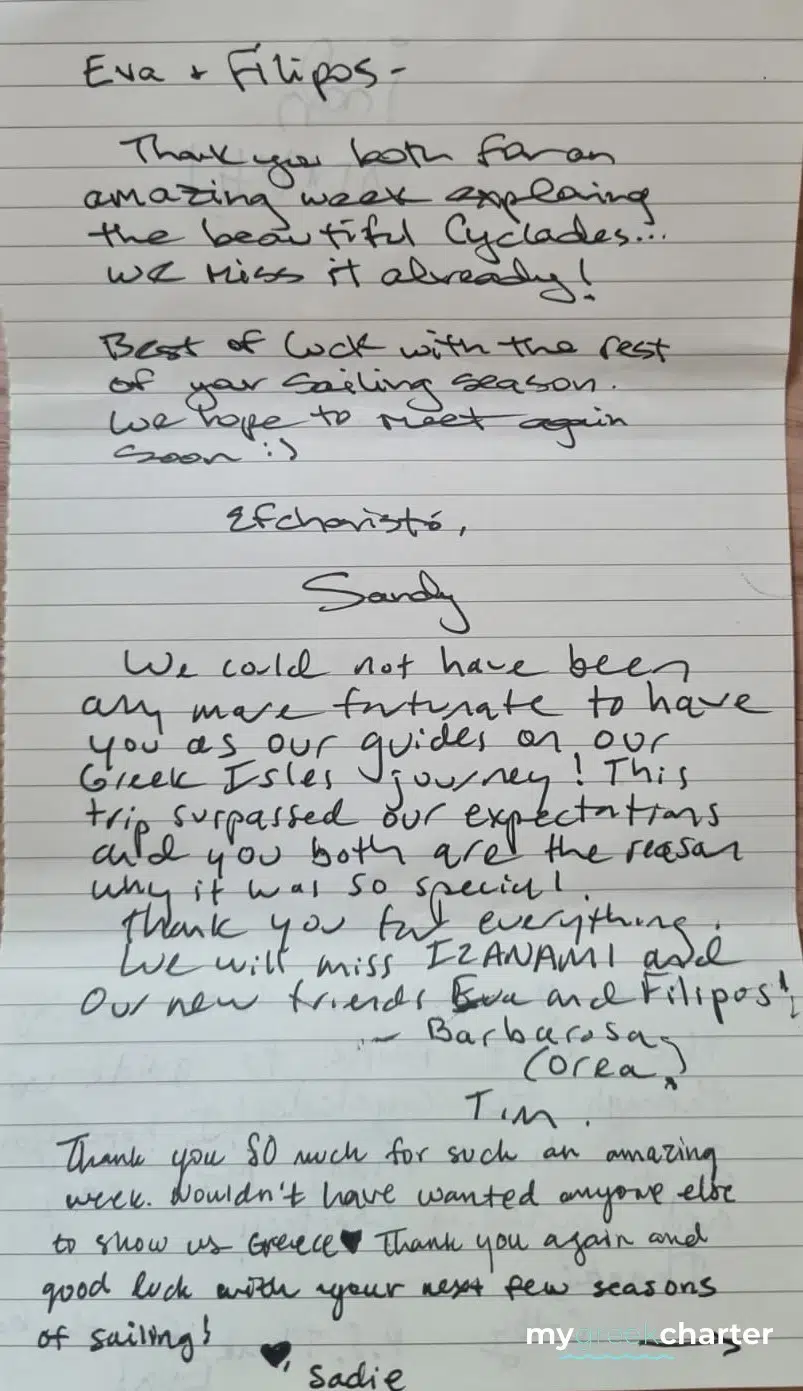 Eva + Filipos-
Thank you both for an
amazing week exploring
the beautiful Cyclades...
we miss it already!
Best of luck with the rest
of your sailing season.
We hope to meet again
soon :)
Efcharistó,
Sandy
We could not have been
any more fortunate to have
you as our guides on our
Greek Isles journey! This
trip surpassed our expectations
and you both are the reason
why it was so special!
Thank you for everything.
We will miss IZANAMI and
Our new friends Eva and Filipos!
- Barbarosa
(Orea)
Tim.
Thank you SO much for such an amazing
week. Wouldn't have wanted anyone else
to show us Greece♥ Thank you again and
good luck with your next few seasons
of sailing!
♥, Sadie
mygreekcharter